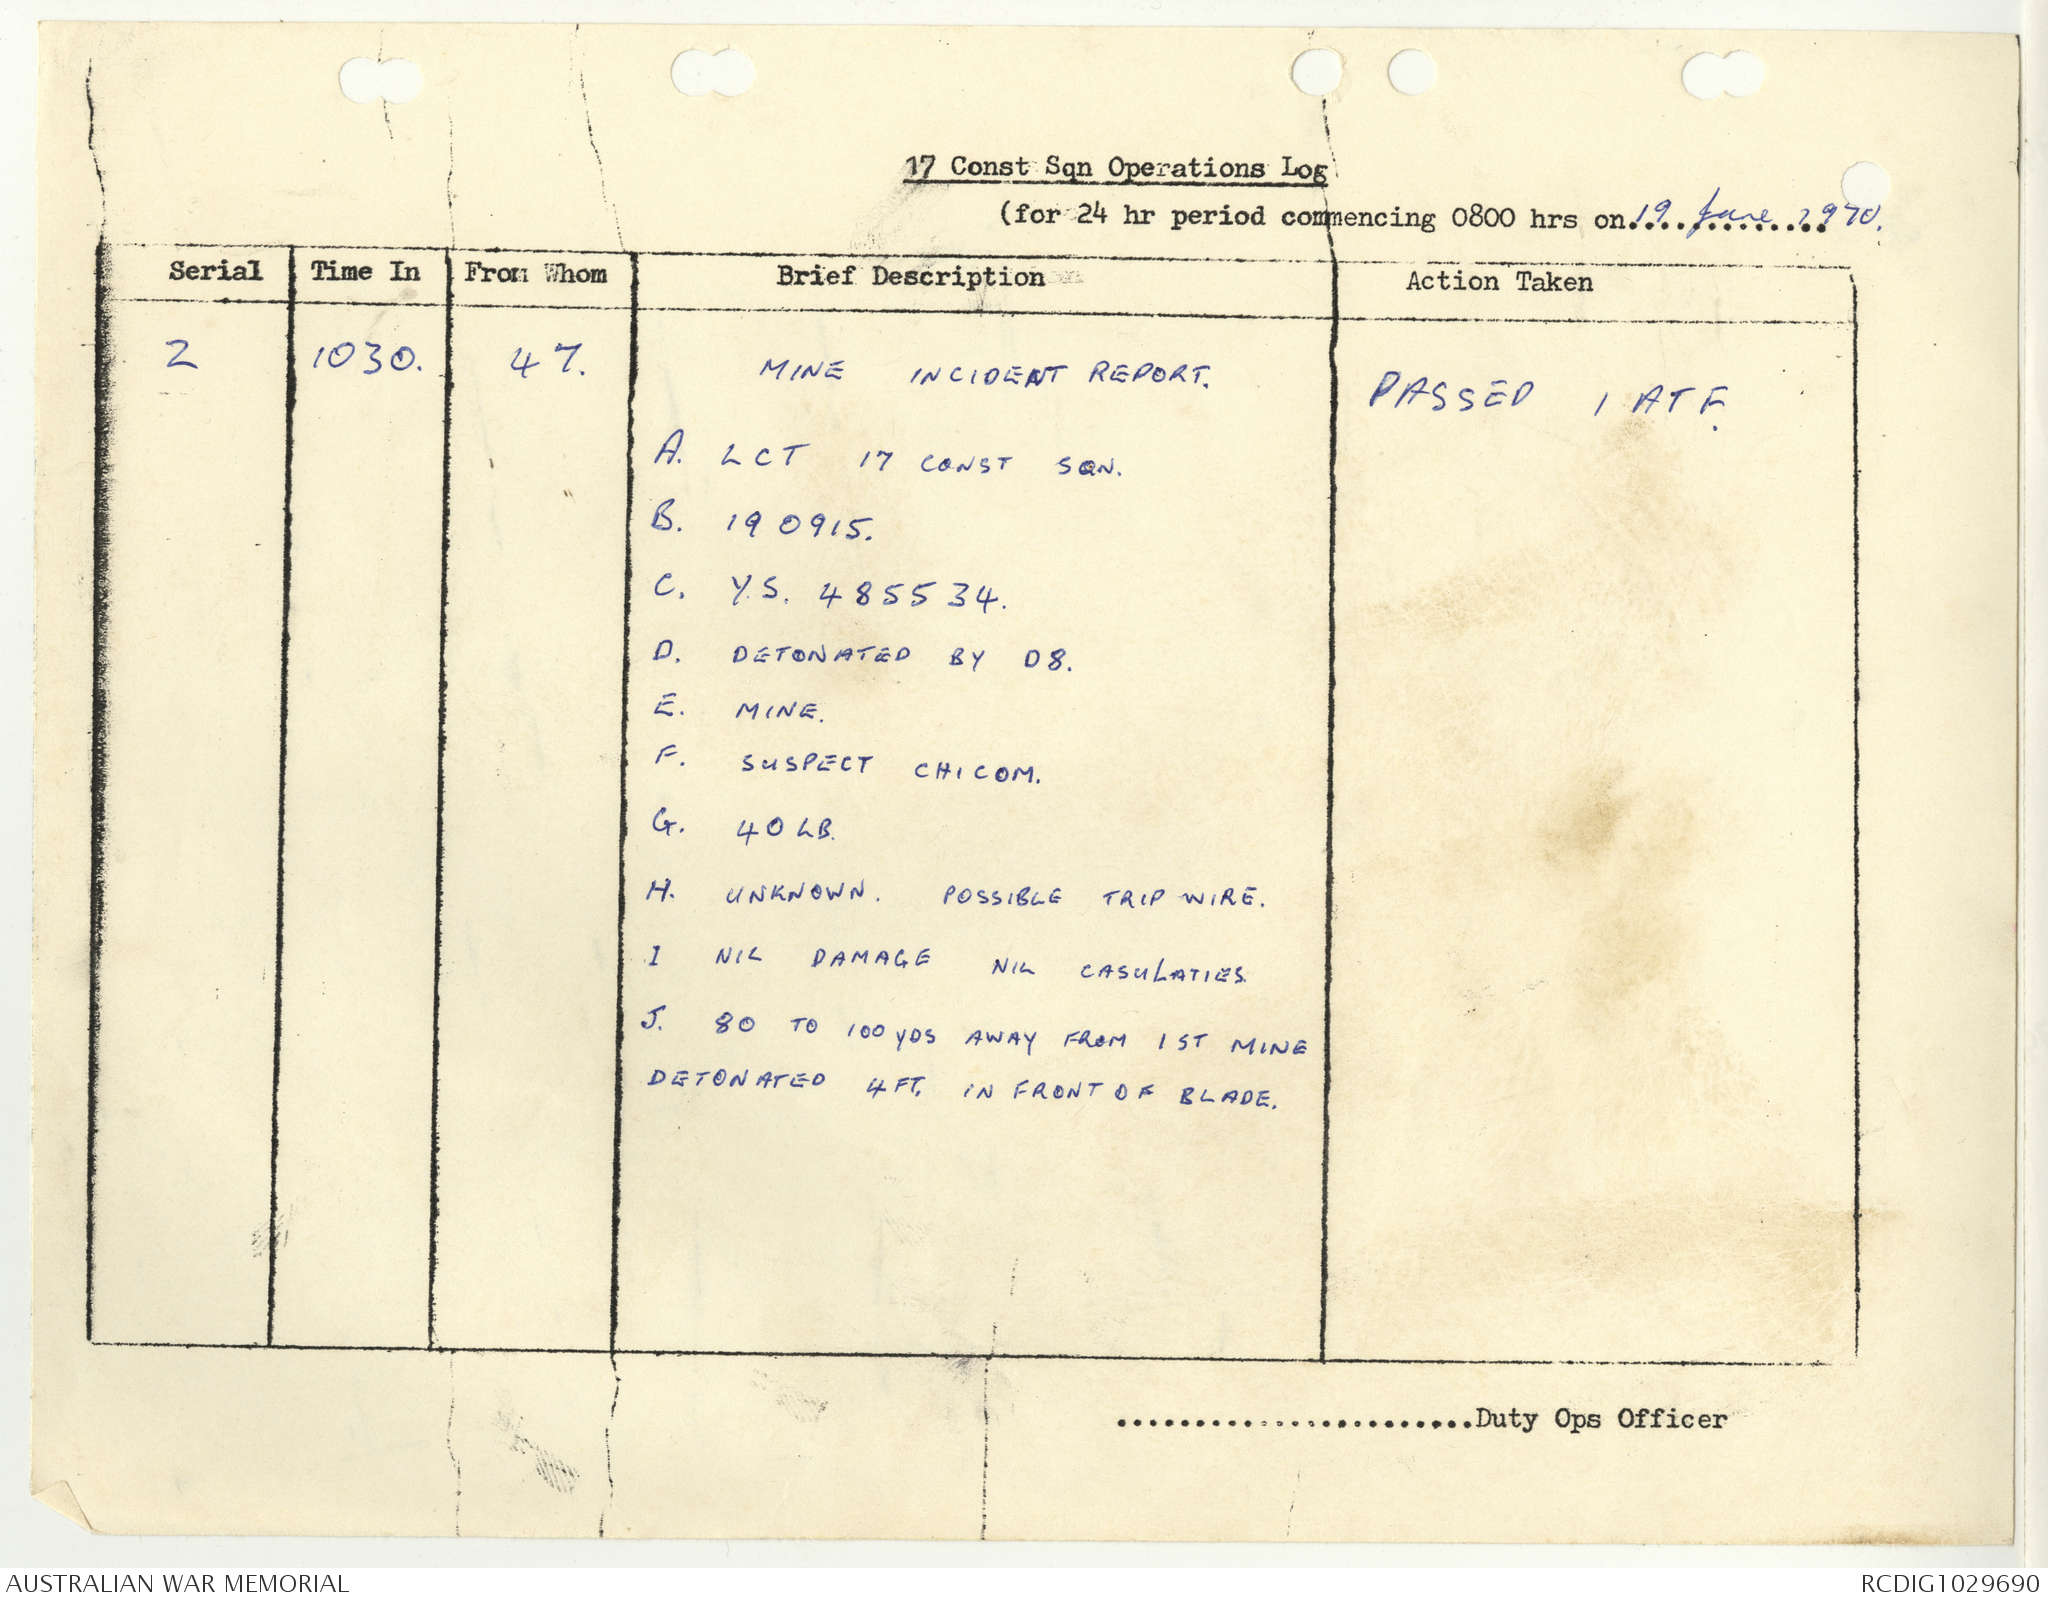 17 Const Sqn Operations Log
(for 24 hr period commencing 0800 hrs on 19 June 1970.
Serial Time In From Whom Brief Description Action Taken
2 1030. 47. MINE INCIDENT REPORT. PASSED 1 ATF.
A. LCT 17 CONST SQN.
B. 190915.
C. Y.S. 485534.
D. DETONATED BY D8.
E. MINE.
F. SUSPECT CHICOM.
G. 40 LB.
H. UNKNOWN. POSSIBLE TRIP WIRE.
I NIL DAMAGE NIL CASULATIES.
J. 80 TO 100 YDS AWAY FROM 1ST MINE
DETONATED 4FT. IN FRONT OF BLADE.
.......................Duty Ops Officer
AUSTRALIAN WAR MEMORIAL RCDIG1029690